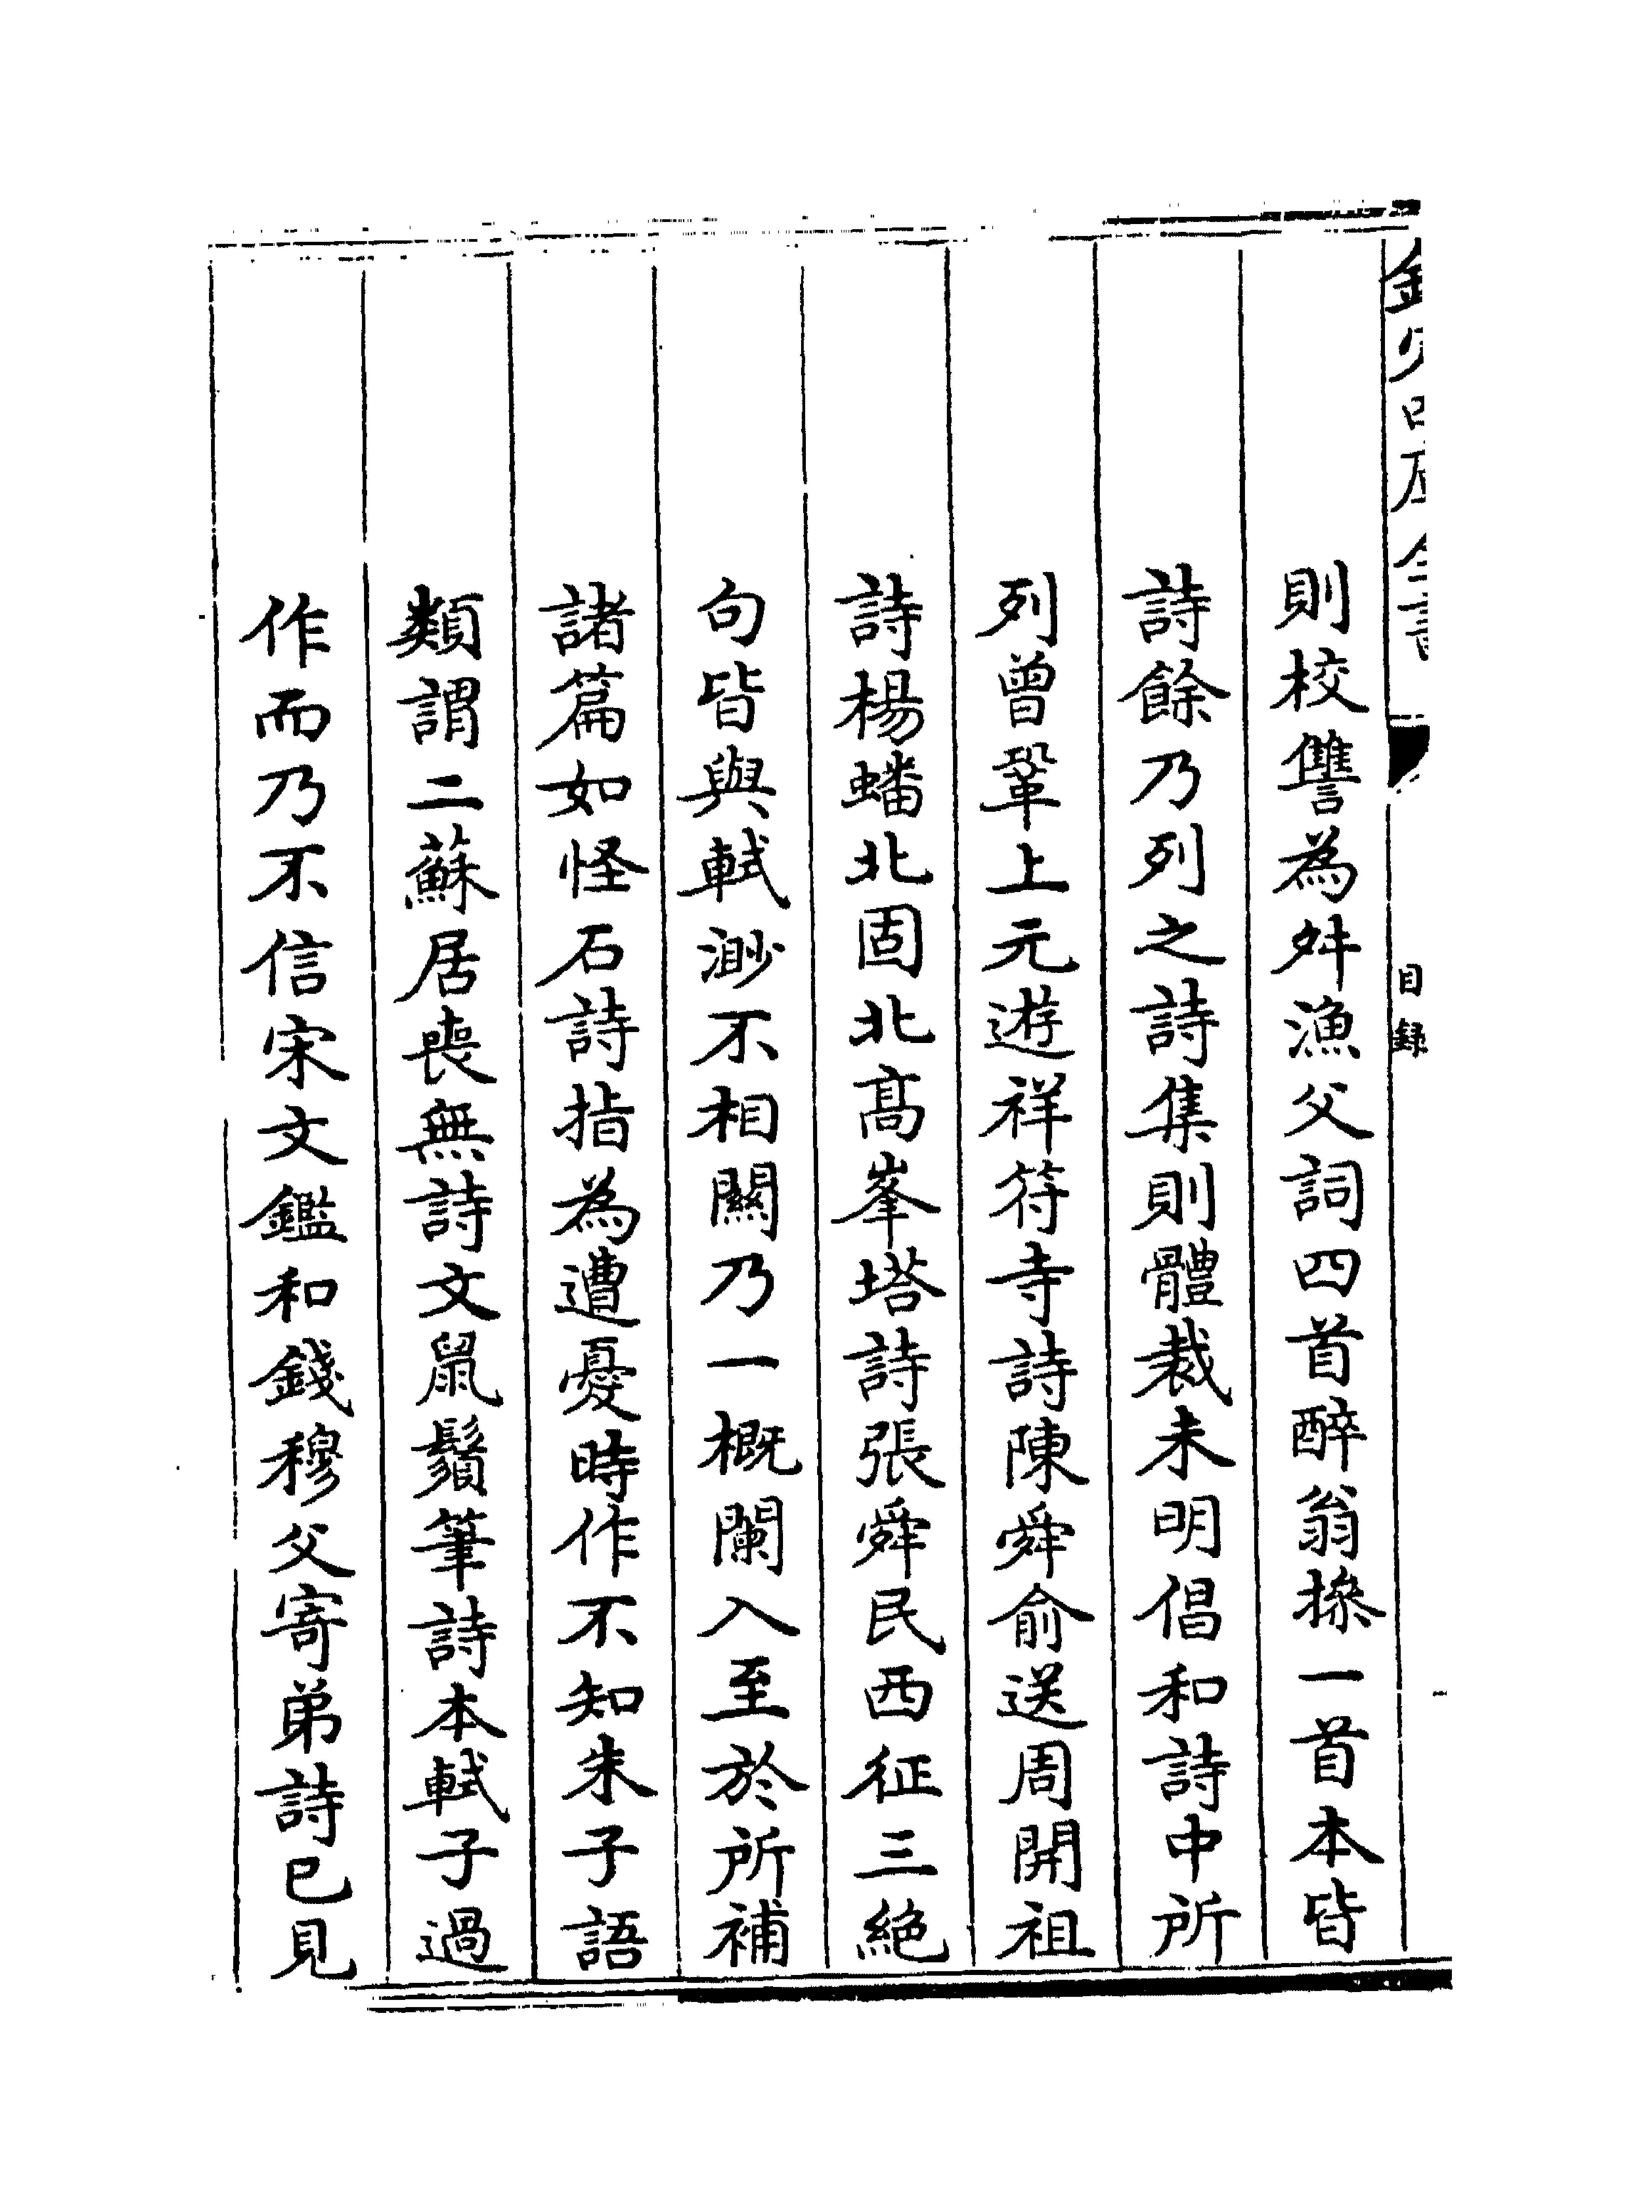 欽定四庫全書
目錄
則校讐為舛漁父詞四首醉翁操一首本皆
詩餘乃列之詩集則體裁未明倡和詩中所
列曾鞏上元遊祥符寺詩陳舜俞送周開祖
詩楊蟠北固北髙峯塔詩張舜民西征三絶
句皆與軾渺不相關乃一概闌入至於所補
諸篇如怪石詩指為遭憂時作不知朱子語
類謂二蘇居喪無詩文鼠鬚筆詩本軾子過
作而乃不信宋文鑑和錢穆父寄弟詩已見